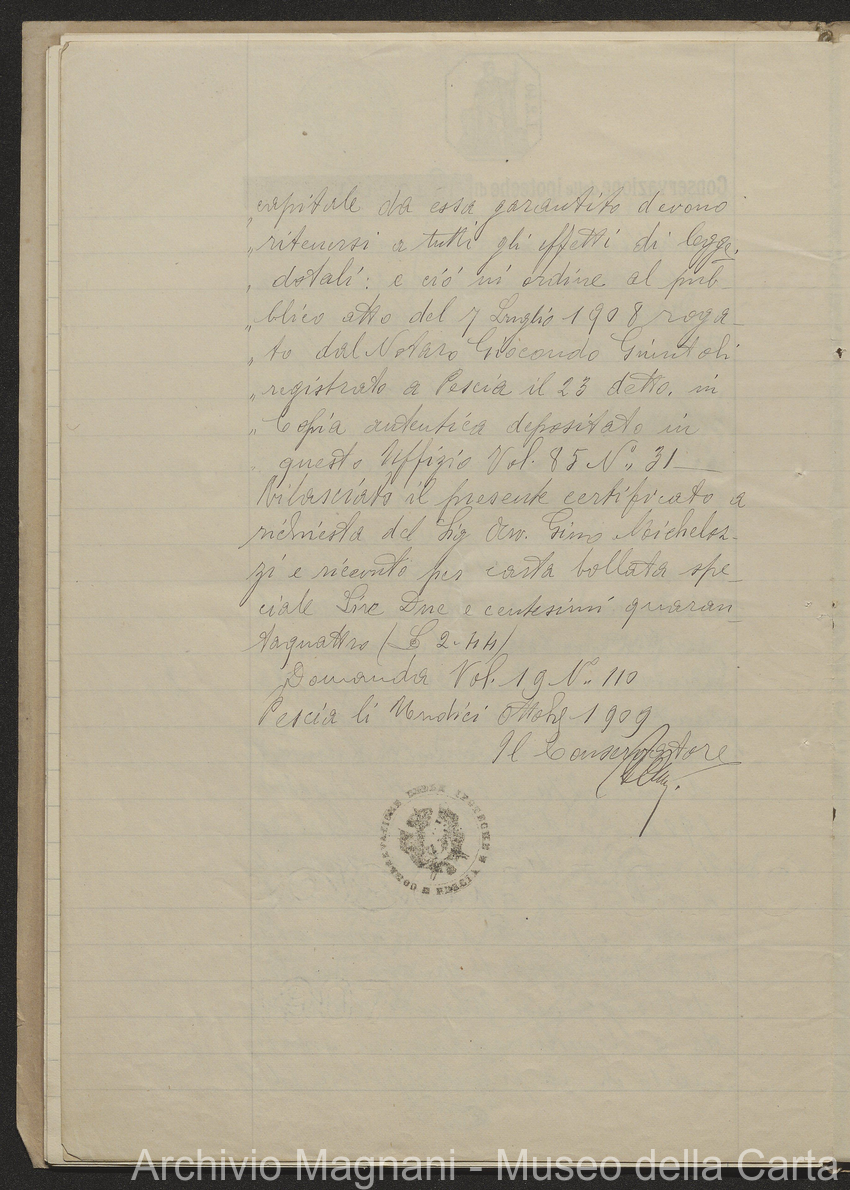 „ capitale da essa garantito devono
„ ritenersi a tutti gli effetti di legge
„ dotali: e ciò in ordine al pub-
„ blico atto del 7 Luglio 1908 roga-
„ to dal Notaro Giocondo Giuntoli
„ registrato a Pescia il 23 detto, in
„ Copia autentica depositato in
„ questo Uffizio Vol. 85 N.° 31—
Rilasciato il presente certificato a
richiesta del Sig Avv. Gino Micheloz-
zi e ricevuto per carta bollata spe-
ciale Lire Due e centesimi quaran
taquattro (L 2.44)
Domanda Vol. 19 N.° 110
Pescia li Undici Ottobre 1909
Il Conservatore
CONSERVAZIONE DELLE IPOTECHE PESCIA
Archivio Magnani - Museo della Carta